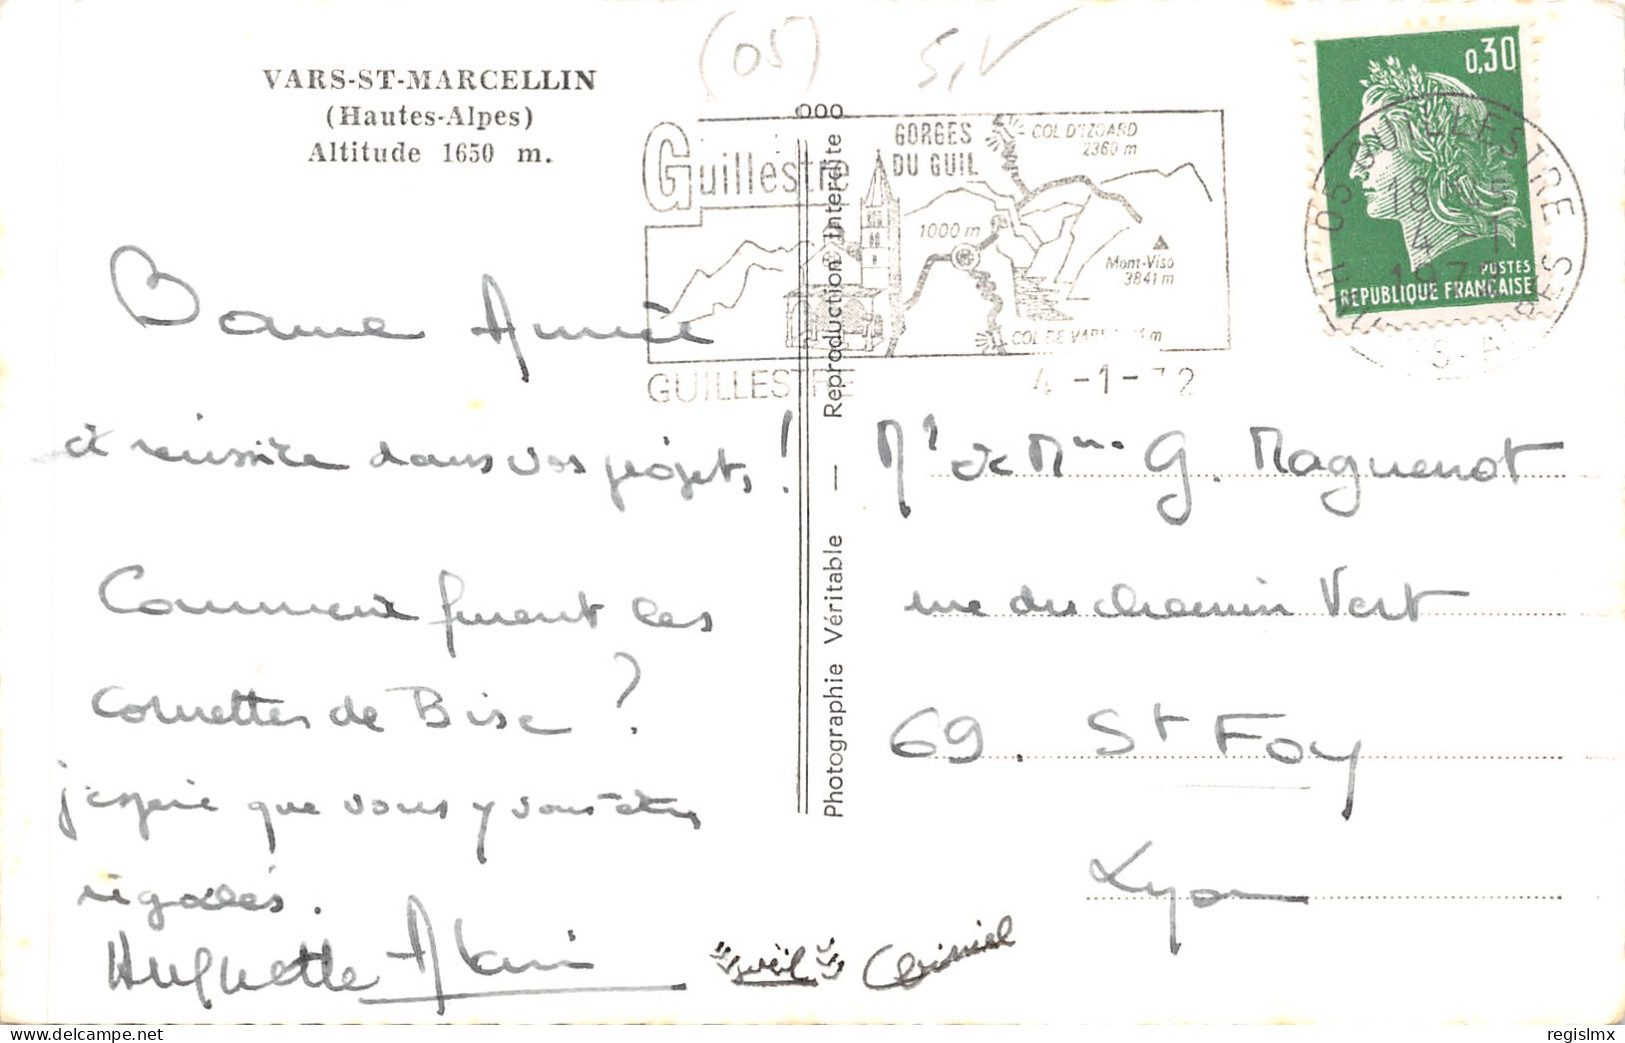 (05)
VARS-ST-MARCELLIN
(Hautes-Alpes)
Altitude 1650 m.
Guillestre
GORGES
DU GUIL
COL D'IZOARD
2360 m
1000 m
Mont-Viso
3841 m
COL DE VARS
GUILLESTRE
4 -1- 72
0,30
POSTES
REPUBLIQUE FRANÇAISE
05 GUILLESTRE
18H
4 -1
Photographie Véritable — Reproduction Interdite
Bonne Année
et réussite dans vos projets !
Comment furent les
cornettes de Bise ?
j'espère que vous y vous êtes
régalés.
Huguette Alain
Mr et Mme G. Maguenot
rue du chemin Vert
69. St Foy
Lyon
regislmx